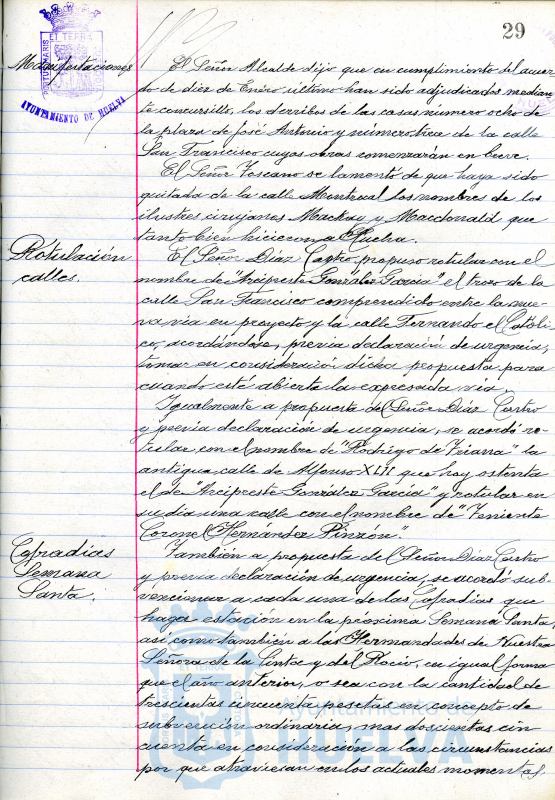 29
PORTUS MARIS ET TERRÆ
AYUNTAMIENTO DE HUELVA
Manifestaciones
El Señor Alcalde dijo que en cumplimiento del acuer-
do de diez de Enero último han sido adjudicados median-
te concursillo, los derribos de las casas número ocho de
la plaza de José Antonio y número trece de la calle
San Francisco cuyas obras comenzarán en breve.
El Señor Toscano se lamentó de que haya sido
quitada de la calle Montreal los nombres de los
ilustres cirujanos Mackay y Macdonald que
tanto bien hicieron a Huelva.
Rotulación
calles.
El Señor Díaz Castro, propuso rotular con el
nombre de "Arcipreste González García" el trozo de la
calle San Francisco comprendido entre la nue-
va vía en proyecto y la calle Fernando el Católi-
co, acordándose, previa declaración de urgencia,
tomar en consideración dicha propuesta para
cuando esté abierta la expresada vía.
Igualmente a propuesta del Señor Díaz Castro
y previa declaración de urgencia, se acordó ro-
tular, con el nombre de "Rodrigo de Triana" la
antigua calle de Alfonso XIII que hoy ostenta
el de "Arcipreste González García" y rotular en
su día una calle con el nombre de "Teniente
Coronel Hernández Pinzón".
Cofradias
Semana
Santa.
También a propuesta del Señor Díaz Castro
y previa declaración de urgencia, se acordó sub-
vencionar a cada una de las Cofradias que
hagan estación en la próxima Semana Santa,
así como también a las Hermandades de Nuestra
Señora de la Cinta y del Rocio, en igual forma
que el año anterior, o sea con la cantidad de
trescientas cincuenta pesetas en concepto de
subvención ordinaria, mas doscientas cin-
cuenta en consideración a las circunstancias
por que atraviesan en los actuales momentos,
Ayuntamiento
HUELVA